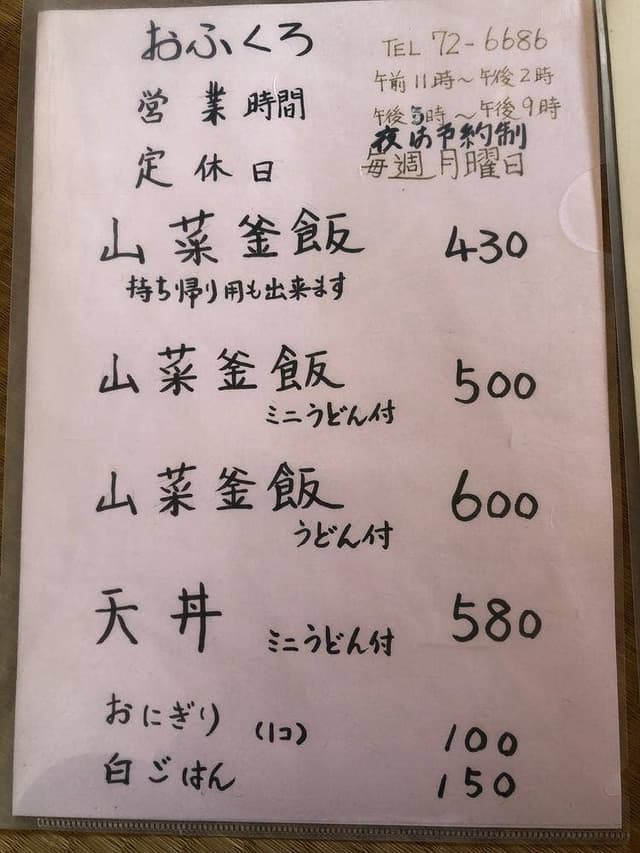 おふくろ TEL 72-6686
営業時間 午前11時～午後2時
午後5時～午後9時
夜は予約制
定休日 毎週月曜日
山菜釜飯 430
持ち帰り用も出来ます
山菜釜飯 500
ミニうどん付
山菜釜飯 600
うどん付
天丼 ミニうどん付 580
おにぎり (1コ) 100
白ごはん 150